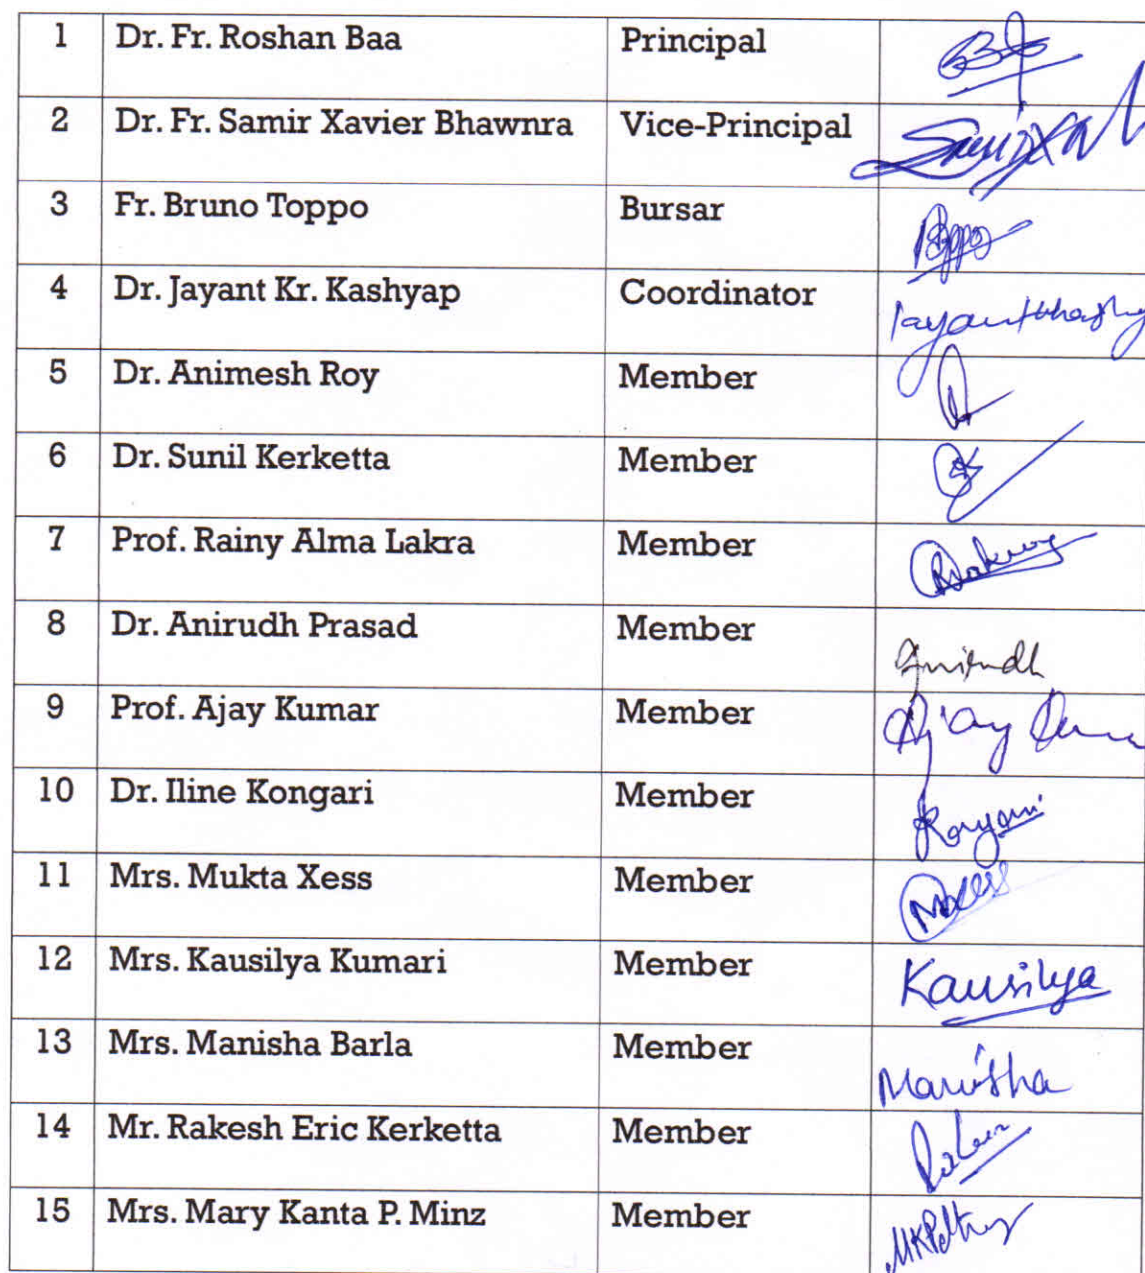 1 Dr. Fr. Roshan Baa Principal
2 Dr. Fr. Samir Xavier Bhawnra Vice-Principal
3 Fr. Bruno Toppo Bursar
4 Dr. Jayant Kr. Kashyap Coordinator
5 Dr. Animesh Roy Member
6 Dr. Sunil Kerketta Member
7 Prof. Rainy Alma Lakra Member
8 Dr. Anirudh Prasad Member Anirudh
9 Prof. Ajay Kumar Member Ajay
10 Dr. Iline Kongari Member
11 Mrs. Mukta Xess Member
12 Mrs. Kausilya Kumari Member Kausilya
13 Mrs. Manisha Barla Member Manisha
14 Mr. Rakesh Eric Kerketta Member
15 Mrs. Mary Kanta P. Minz Member